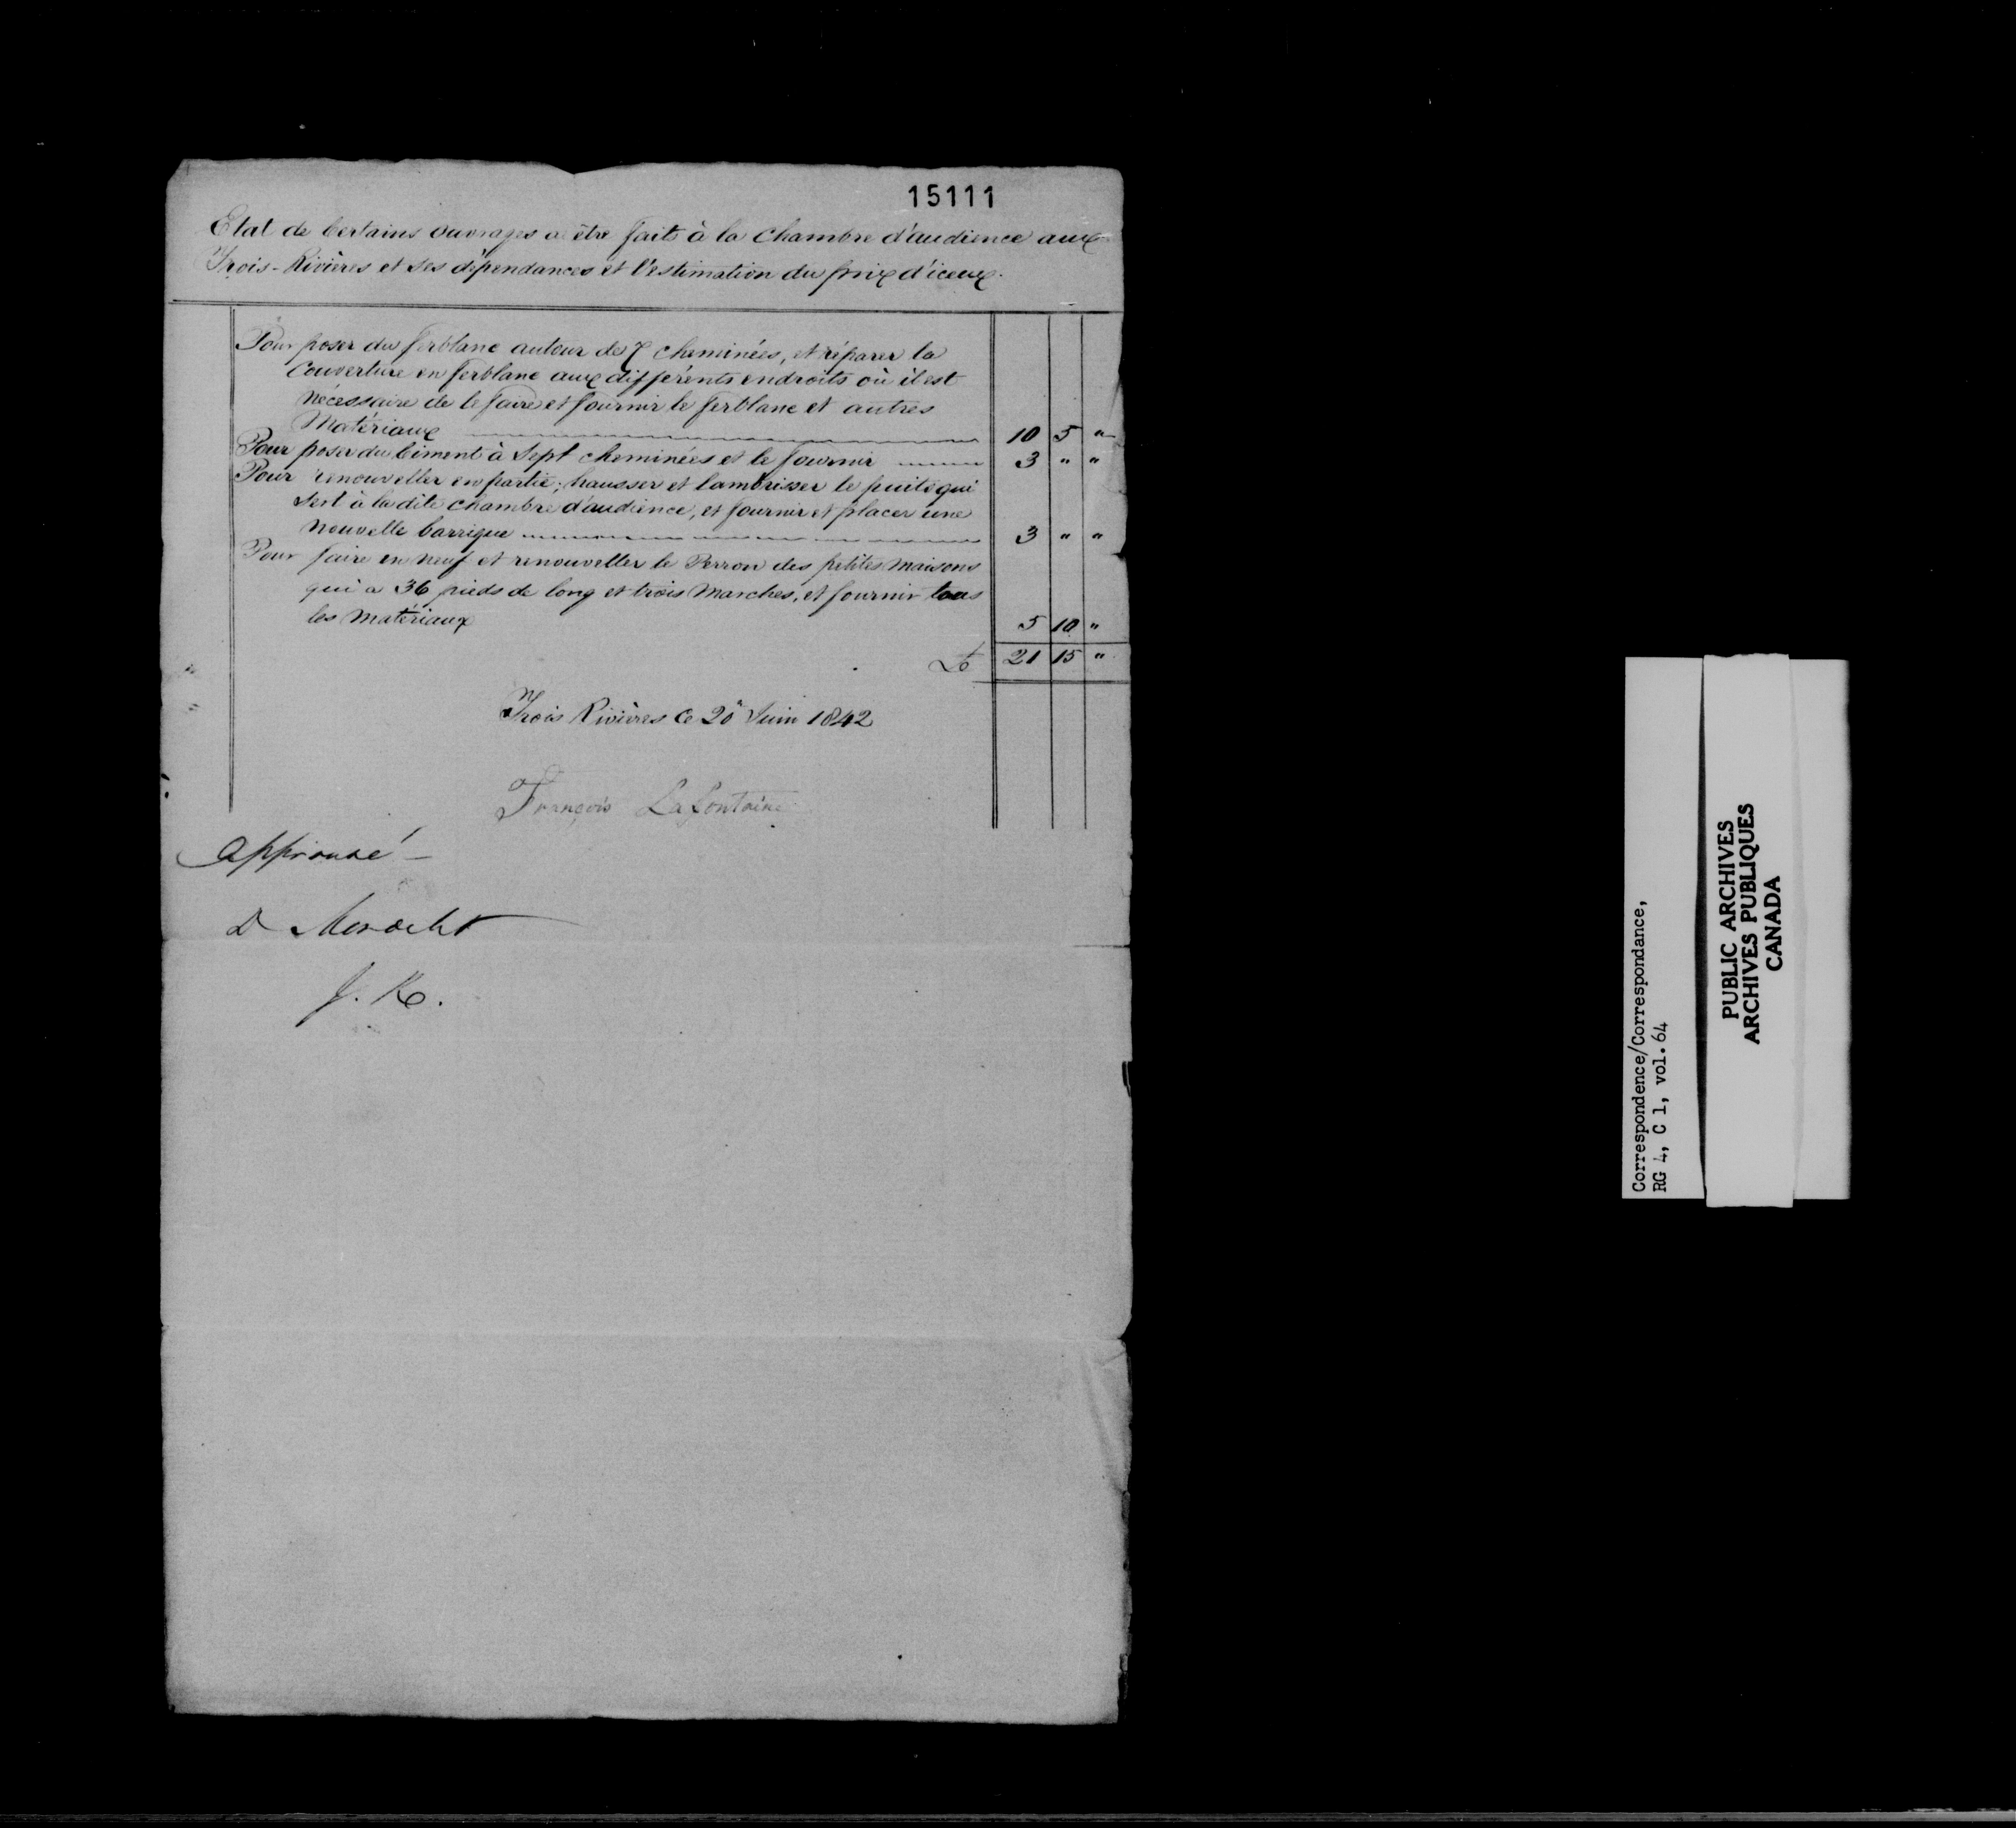 15111
Etat de Certains Ouvrages a être faits à la Chambre d'audience aux
Trois-Rivières et ses dépendances et l'estimation du prix d'iceux.
Pour poser du ferblanc autour de 7 cheminées, et réparer la
Couverture en ferblanc aux différents endroits où il est
Nécessaire de le faire et fournir le ferblanc et autres
Matériaux 10 5 "
Pour poser du Ciment à Sept cheminées et le fournir 3 " "
Pour renouveller en partie, hausser et lambrisser le puits qui
Sert à la dite chambre d'audience, et fournir et placer une
Nouvelle barrique 3 " "
Pour faire en neuf et renouveller le Perron des petites Maisons
qui a 36 pieds de long et trois Marches, et fournir tous
les Matériaux 5 10 "
£ 21 15 "
Trois Rivières Ce 20 Juin 1842
François Lafontaine
Approuvé —
D Mondelet
Correspondence/Correspondance,
RG 4, C 1, vol.64
PUBLIC ARCHIVES
ARCHIVES PUBLIQUES
CANADA